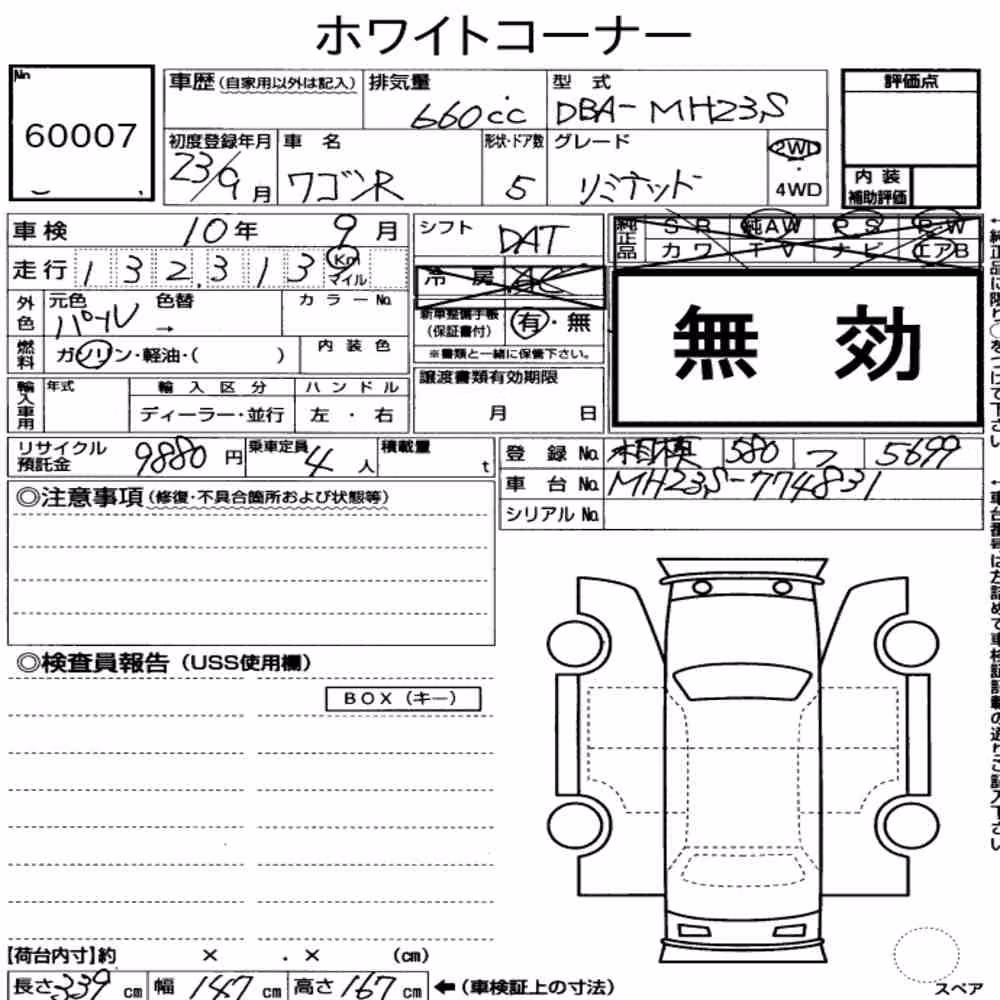 ホワイトコーナー
No 60007
車歴 (自家用以外は記入) 排気量 型式 評価点
660cc DBA-MH23S
初度登録年月 車名 形状・ドア数 グレード 2WD
23/9月 ワゴンR 5 リミテッド 4WD 内装補助評価
車検 10年 9月 シフト DAT 純正品 SR 純AW PS PW
走行 132,313 Km マイル 冷房 AC カワ TV ナビ エアB
外色 元色 パール 色替 → カラーNo. 新車整備手帳(保証書付) 有・無
※書類と一緒に保管下さい。
無効
燃料 ガソリン・軽油・( ) 内装色
輸入車用 年式 輸入区分 ハンドル 譲渡書類有効期限
ディーラー・並行 左・右 月 日
リサイクル預託金 9880円 乗車定員 4人 積載量 t 登録No. 相模 580 5699
車台No. MH23S-774831
シリアルNo.
◎注意事項(修復・不具合箇所および状態等)
◎検査員報告(USS使用欄)
BOX(キー)
【荷台内寸】約 × . × (cm)
長さ339cm 幅147cm 高さ167cm ←(車検証上の寸法)
スペア
←純正品に限り○をつけて下さい
←車台番号は左詰めで車検証記載の通りご記入下さい